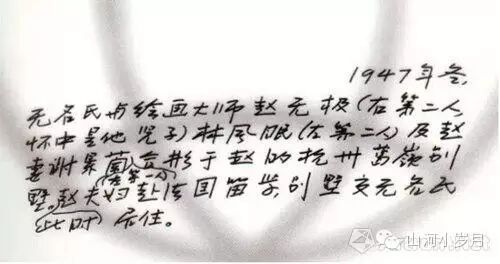 1947年冬,
无名氏与绘画大师赵无极(右第二人,
怀中是他儿子)林风眠(左第二人)及赵
妻谢景兰合影于赵的杭州葛岭别
(左第一人)
墅。赵夫妇赴法国留学,别墅交无名氏
(此时)居住。
山河小岁月